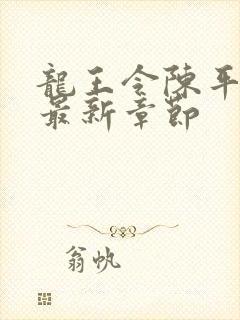 龍王令陳平
最新章節
翁帆